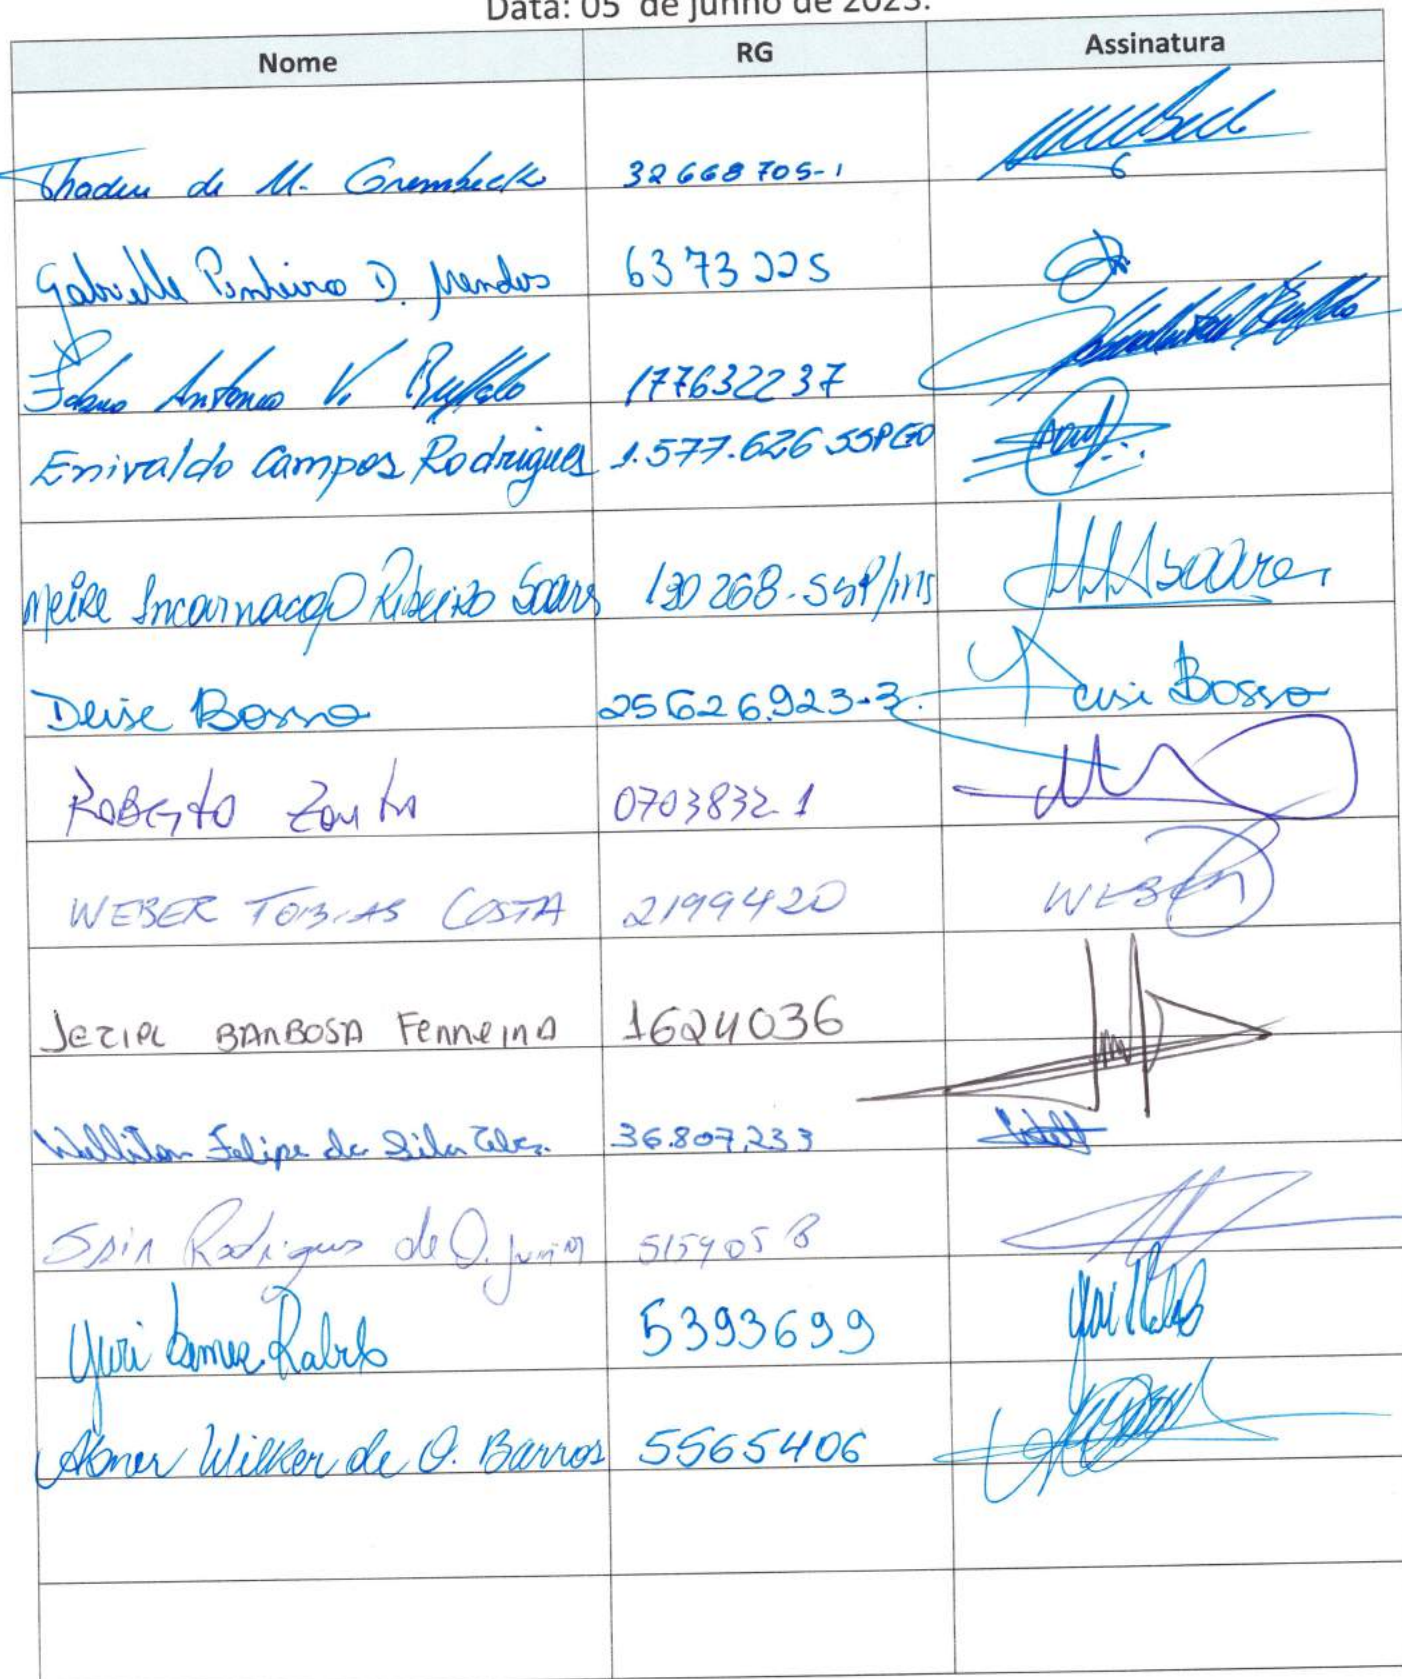 Data: 05 de junho de 2023.
Nome RG Assinatura
Thadeu de M. Grembeck 32668705-1
Gabrielle Pinheiro D. Mendes 6373225
Antonio V. Buffalo 177632237
Enivaldo Campos Rodrigues 1.577.626 SSPGO
Meire Incarnacao Ribeiro Soares 130268-SSP/MS Soares
Deise Bosso 25626.923-3. Deise Bosso
Roberto Zonta 0703832-1
WEBER TOBIAS COSTA 2199420 WEBER
JEZIEL BARBOSA Ferreira 1624036
Felipe da Silva 36.807.233
Rodrigues de O. Junior 5154058
Yuri Rabelo 5393699
Abner Wilker de O. Barros 5565406